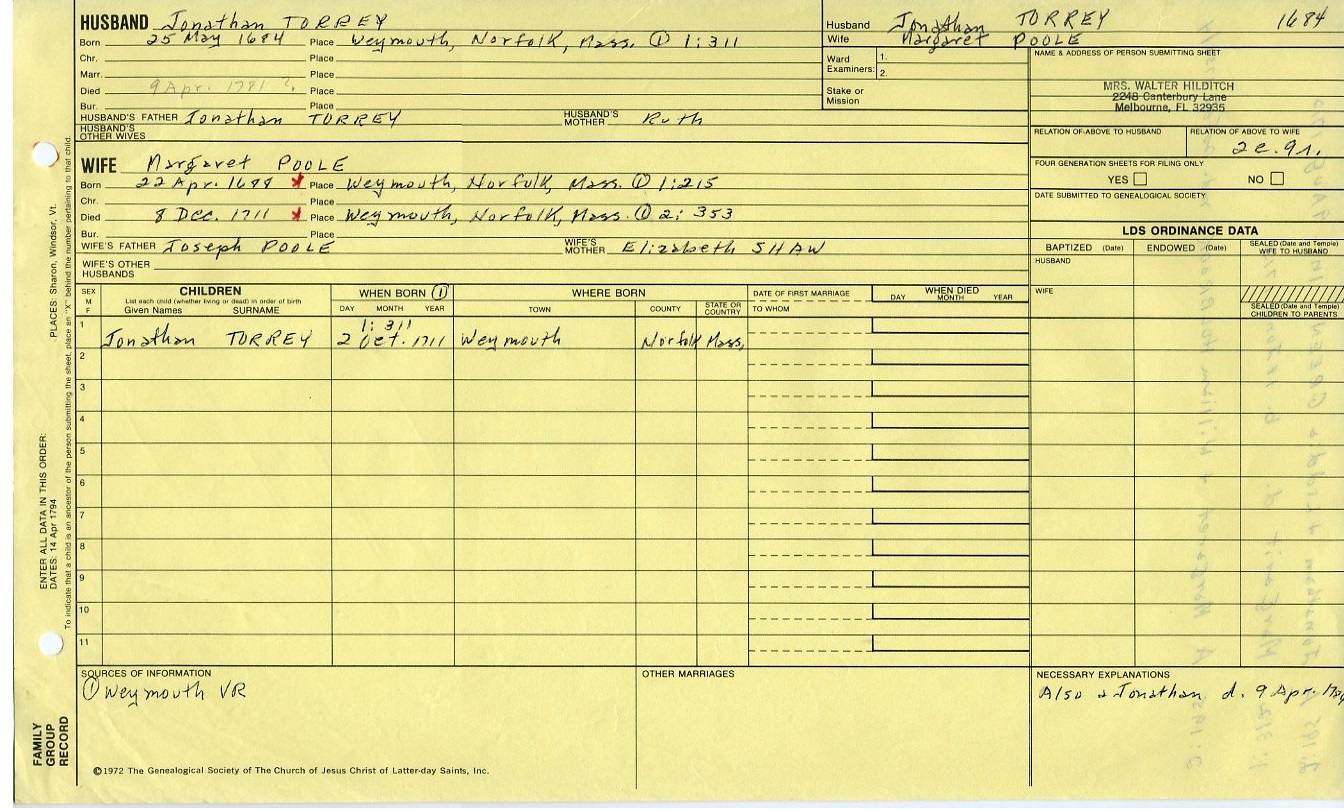 HUSBAND Jonathan TORREY
Born 25 May 1684 Place Weymouth, Norfolk, Mass. ① 1:311
Chr. Place
Marr. Place
Died 9 Apr. 1781 ? Place
Bur. Place
HUSBAND'S FATHER Jonathan TORREY HUSBAND'S MOTHER Ruth
HUSBAND'S OTHER WIVES
WIFE Margaret POOLE
Born 22 Apr. 1688 x Place Weymouth, Norfolk, Mass. ① 1:215
Chr. Place
Died 8 Dec. 1711 x Place Weymouth, Norfolk, Mass. ① 2:353
Bur. Place
WIFE'S FATHER Joseph POOLE WIFE'S MOTHER Elizabeth SHAW
WIFE'S OTHER HUSBANDS
Husband Jonathan TORREY 1684
Wife Margaret POOLE
Ward Examiners: 1.
2.
Stake or Mission
NAME & ADDRESS OF PERSON SUBMITTING SHEET
MRS. WALTER HILDITCH
2248 Canterbury Lane
Melbourne, FL 32935
RELATION OF ABOVE TO HUSBAND RELATION OF ABOVE TO WIFE
FOUR GENERATION SHEETS FOR FILING ONLY
YES NO
DATE SUBMITTED TO GENEALOGICAL SOCIETY
LDS ORDINANCE DATA
BAPTIZED (Date) ENDOWED (Date) SEALED (Date and Temple) WIFE TO HUSBAND
HUSBAND
WIFE
SEALED (Date and Temple) CHILDREN TO PARENTS
SEX M F
CHILDREN
List each child (whether living or dead) in order of birth
Given Names SURNAME
WHEN BORN ①
DAY MONTH YEAR
WHERE BORN
TOWN COUNTY STATE OR COUNTRY
DATE OF FIRST MARRIAGE
TO WHOM
WHEN DIED
DAY MONTH YEAR
1:311
1 Jonathan TORREY 2 Oct. 1711 Weymouth Norfolk Mass,
2
3
4
5
6
7
8
9
10
11
SOURCES OF INFORMATION
① Weymouth VR
OTHER MARRIAGES
NECESSARY EXPLANATIONS
Also a Jonathan d. 9 Apr.
©1972 The Genealogical Society of The Church of Jesus Christ of Latter-day Saints, Inc.
FAMILY GROUP RECORD
ENTER ALL DATA IN THIS ORDER:
DATES: 14 Apr 1794
PLACES: Sharon, Windsor, Vt.
To indicate that a child is an ancestor of the person submitting the sheet, place an "X" behind the number pertaining to that child.